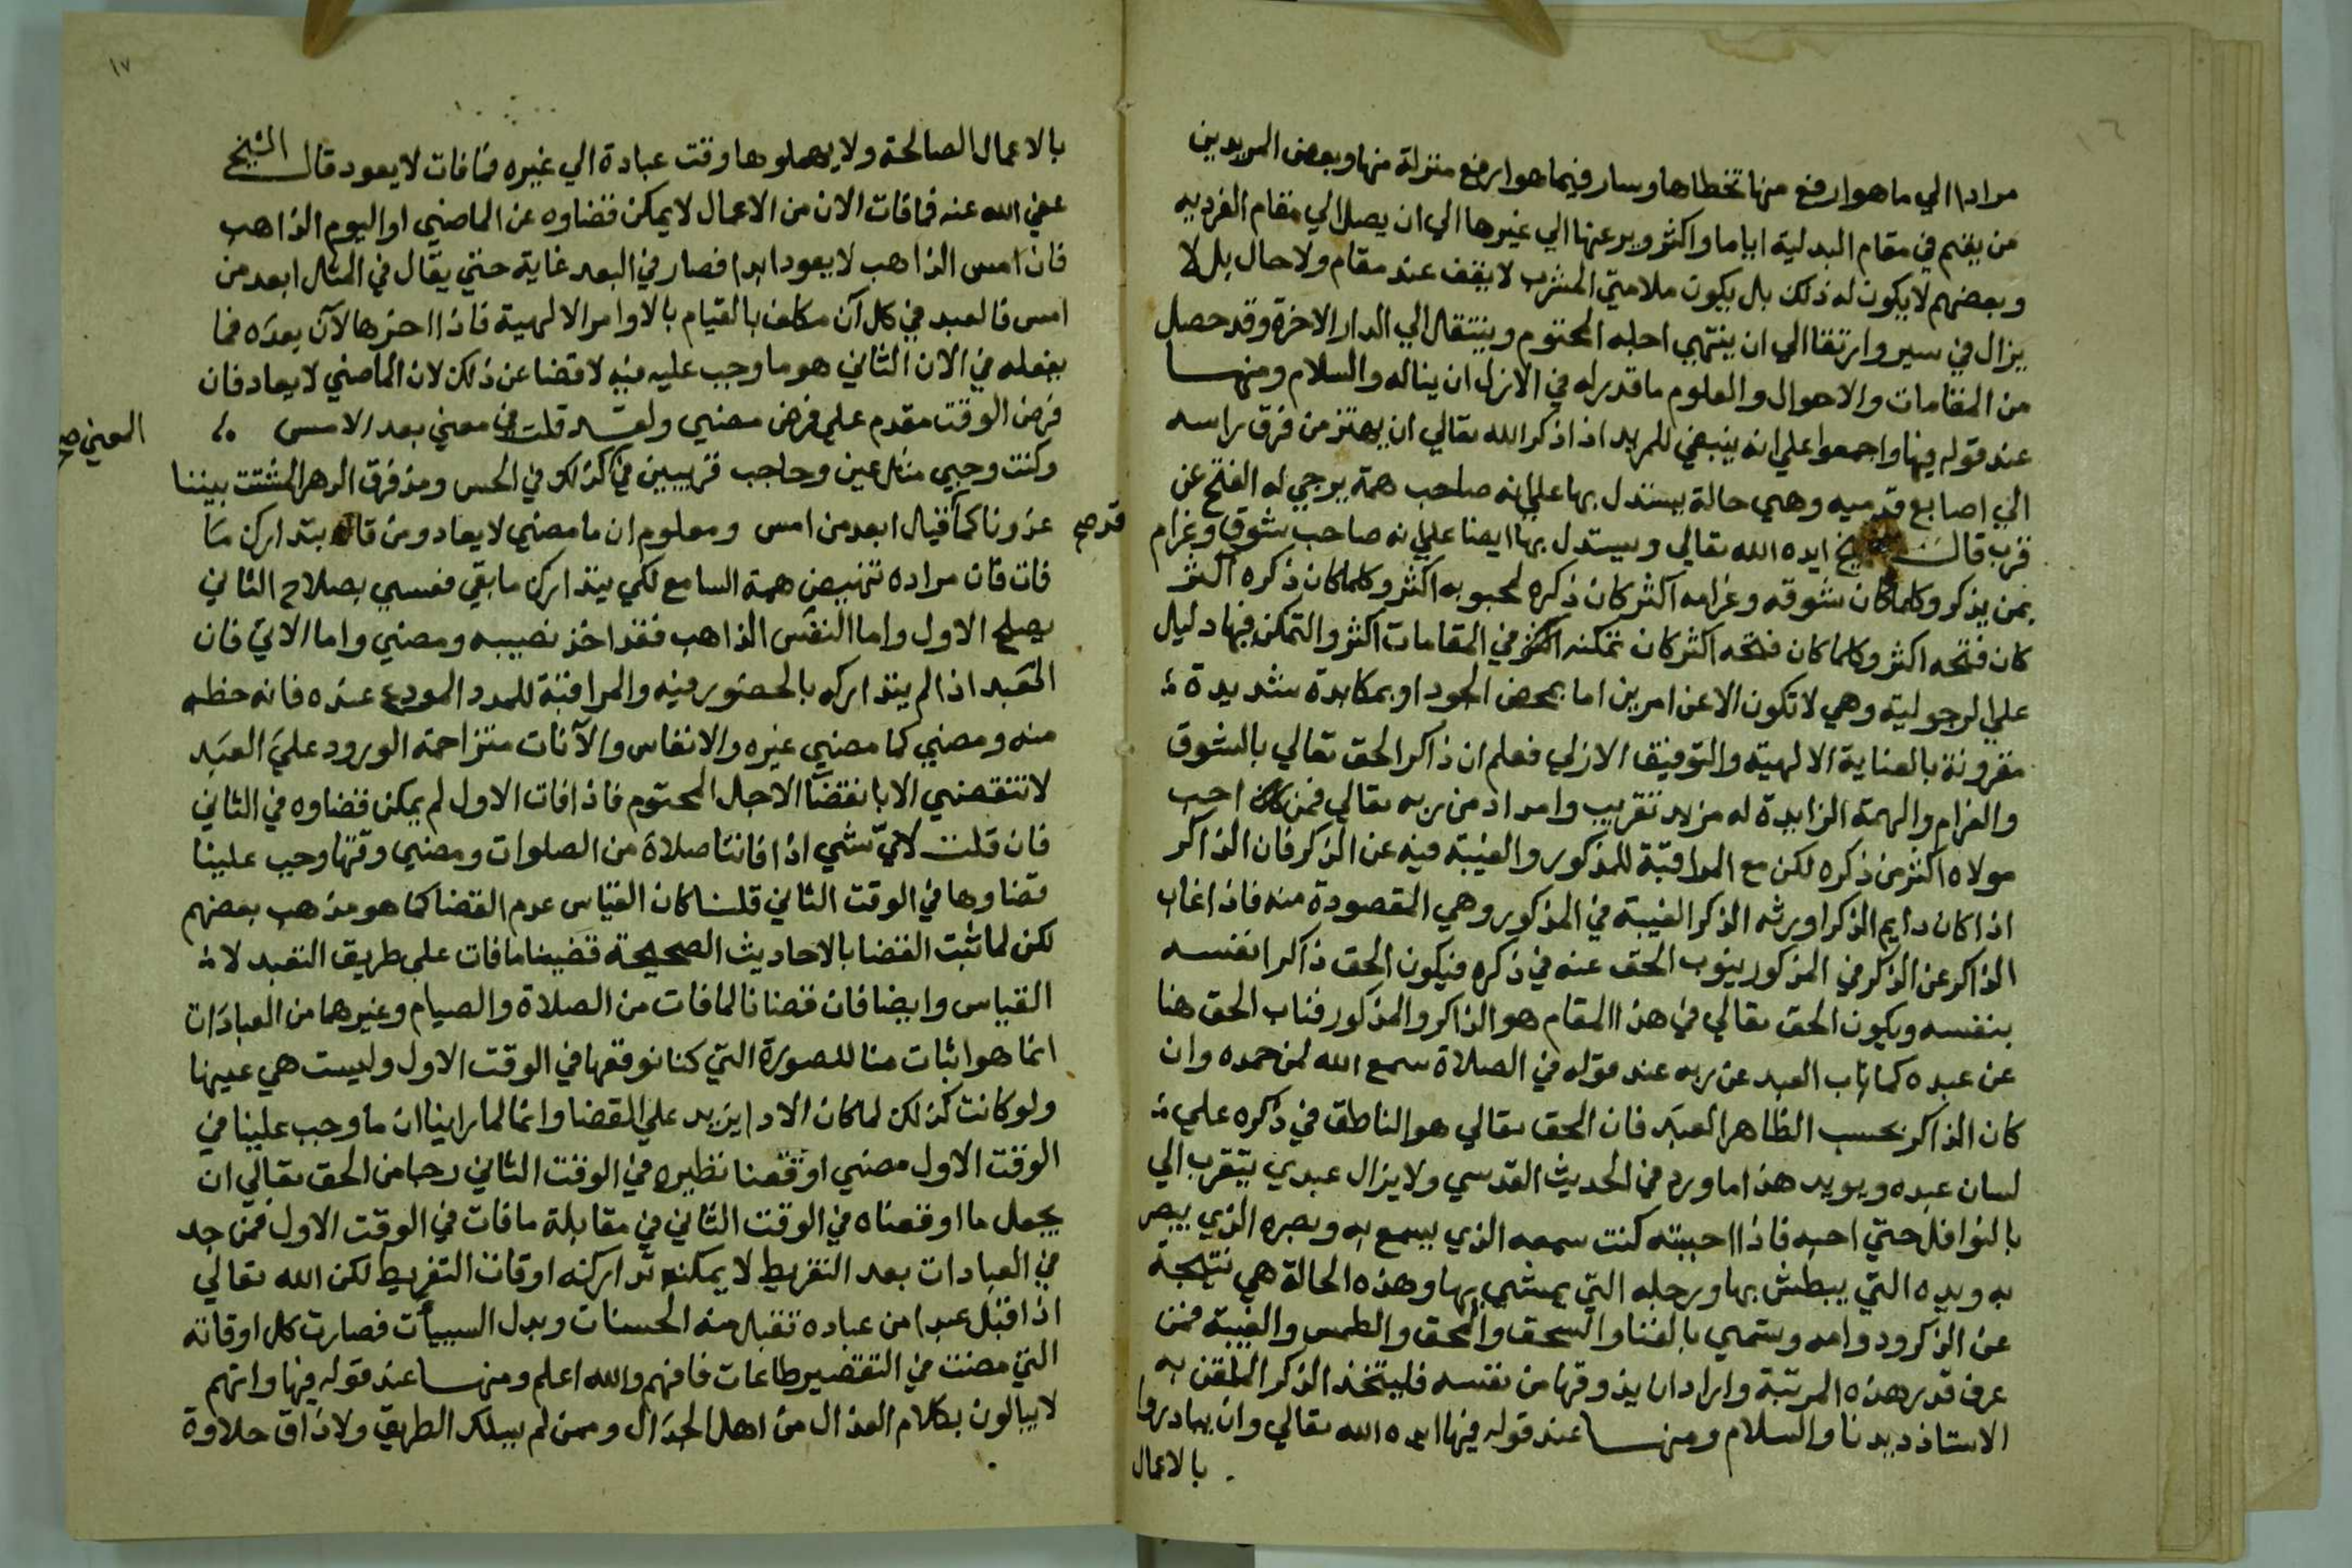 ١٦
مرادا الي ما هو ارفع منها تخطاها وسار فيما هو ارفع منزلة منها وبعض المريدين
من يقيم في مقام البدلية اياما واكثر ويرعنها الي غيرها الي ان يصل الي مقام الفرديه
وبعضهم لا يكون له ذلك بل يكون ملامتي المشرب لا يقف عند مقام ولا حال بل لا
يزال في سير وارتقا الي ان ينتهي اجله المحتوم وينتقل الي الدار الاخرة وقد حصل
من المقامات والاحوال والعلوم ما قدر له في الازل ان يناله والسلام ومنها
عند قوله فيها واجمعوا علي انه ينبغي للمريد اذا ذكر الله تعالي ان يهتز من فرق راسه
الي اصابع قدميه وهي حالة يستدل بها علي انه صاحب همة يرجي له الفتح عن
قرب قال الشيخ ايده الله تعالي ويستدل بها ايضا علي انه صاحب شوق وغرام
بمن يذكر وكلما كان شوقه وغرامه اكثر كان ذكره لمحبوبه اكثر وكلما كان ذكره اكثر
كان فتحه اكثر وكلما كان فتحه اكثر كان تمكنه اكثر في المقامات اكثر والتمكن فيها دليل
علي الرجولية وهي لا تكون الا عن امرين اما بمحض الجود او بمكابدة شديدة
مقرونة بالعناية الالهية والتوفيق الازلي فعلم ان ذاكر الحق تعالي بالشوق
والغرام والهمة الزايدة له مزيد تقريب وامداد من ربه تعالي فمن احب
مولاه اكثر من ذكره لكن مع المراقبة للمذكور والغيبة فيه عن الذكر فان الذاكر
اذا كان دايم الذكر اورثه الذكر الغيبة في المذكور وهي المقصودة منه فاذا غاب
الذاكر عن الذكر في المذكور ينوب الحق عنه في ذكره فيكون الحق ذاكرا نفسه
بنفسه ويكون الحق تعالي في هذا المقام هو الذاكر والمذكور فناب الحق هنا
عن عبده كما ناب العبد عن ربه عند قوله في الصلاة سمع الله لمن حمده وان
كان الذاكر بحسب الظاهر العبد فان الحق تعالي هو الناطق في ذكره علي
لسان عبده ويويد هذا ما ورد في الحديث القدسي ولا يزال عبدي يتقرب الي
بالنوافل حتي احبه فاذا احببته كنت سمعه الذي يسمع به وبصره الذي يبصر
به ويده التي يبطش بها ورجله التي يمشي بها وهذه الحالة هي نتيجة
عن الذكر ودوامه وتسمي بالفنا والسحق والمحق والطمس والغيبة فمن
عرف قدر هذه المرتبة واراد ان يذوقها من نفسه فليتخذ الذكر الملقن به
الاستاذ ديدنا والسلام ومنها عند قوله فيها ايده الله تعالي وان يبادروا
بالاعمال
١٧
بالاعمال الصالحة ولا يهملوها وقت عبادة الي غيره فما فات لا يعود قال الشيخ
عفي الله عنه فما فات الان من الاعمال لا يمكن قضاوه عن الماضي او اليوم الذاهب
فان امس الذاهب لا يعود ابدا فصار في البعد غاية حتي يقال في المثل ابعد من
امس فالعبد في كل آن مكلف بالقيام بالاوامر الالهية فاذا اخرها لآن بعده فما
يفعله في الان الثاني هو ما وجب عليه فيه لا قضا عن ذلك لان الماضي لا يعاد فان
فرض الوقت مقدم علي فرض مضي ولقد قلت في معني بعد الامس
المعني صح
وكنت وحبي مثل عين وحاجب قريبين في كذلك في الحس ومذ فرق الدهر المشتت بيننا
غدونا كما قيل ابعد من امس ومعلوم ان ما مضي لا يعاد ومن قال بتدارك ما
قد صح
فات فان مراده تنهيض همة السامع لكي يتدارك ما بقي فعسي بصلاح الثاني
يصلح الاول واما النفس الذاهب فقد اخذ نصيبه ومضي واما الاتي فان
العبد اذا لم يتداركه بالحضور فيه والمراقبة للمدد المودع عنده فانه حظه
منه ومضي كما مضي غيره والانفاس والآنات متزاحمة الورود علي العبد
لا تنقضي الا بانقضا الاجل المحتوم فاذا فات الاول لم يمكن قضاوه في الثاني
فان قلت لاي شي اذا فاتتنا صلاة من الصلوات ومضي وقتها وجب علينا
قضاوها في الوقت الثاني قلنا كان القياس عدم القضا كما هو مذهب بعضهم
لكن لما ثبت القضا بالاحاديث الصحيحة قضينا ما فات علي طريق التعبد لا
القياس وايضا فان قضانا لما فات من الصلاة والصيام وغيرهما من العبادات
انما هو اثبات منا للصورة التي كنا نوقعها في الوقت الاول وليست هي عينها
ولو كانت كذلك لما كان الادا يزيد علي القضا وانما لما راينا ان ما وجب علينا في
الوقت الاول مضي اوقعنا نظيره في الوقت الثاني رجا من الحق تعالي ان
يجعل ما اوقعناه في الوقت الثاني في مقابلة ما فات في الوقت الاول فمن جد
في العبادات بعد التفريط لا يمكنه تداركه اوقات التفريط لكن الله تعالي
اذا قبل عبدا من عباده تقبل منه الحسنات وبدل السييأت فصارت كل اوقاته
التي مضت في التقصير طاعات فافهم والله اعلم ومنها عند قوله فيها وانهم
لا يبالون بكلام العذال من اهل الجدال وممن لم يسلك الطريق ولا ذاق حلاوة